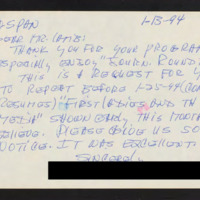 CSPAN 1-13-94
DEAR MR. LAMB:
THANK YOU FOR YOUR PROGRAM
ESPECIALLY ENJOY "JOURN. ROUND
THIS IS A REQUEST FOR Y
TO REPEAT BEFORE 1-25-94 (CON
RESUMES) "FIRST LADIES AND TH
MEDIA" SHOWN EARLY THIS MONTH
PLEASE GIVE US SO
NOTICE. IT WAS EXCELLENT.
SINCERELY,